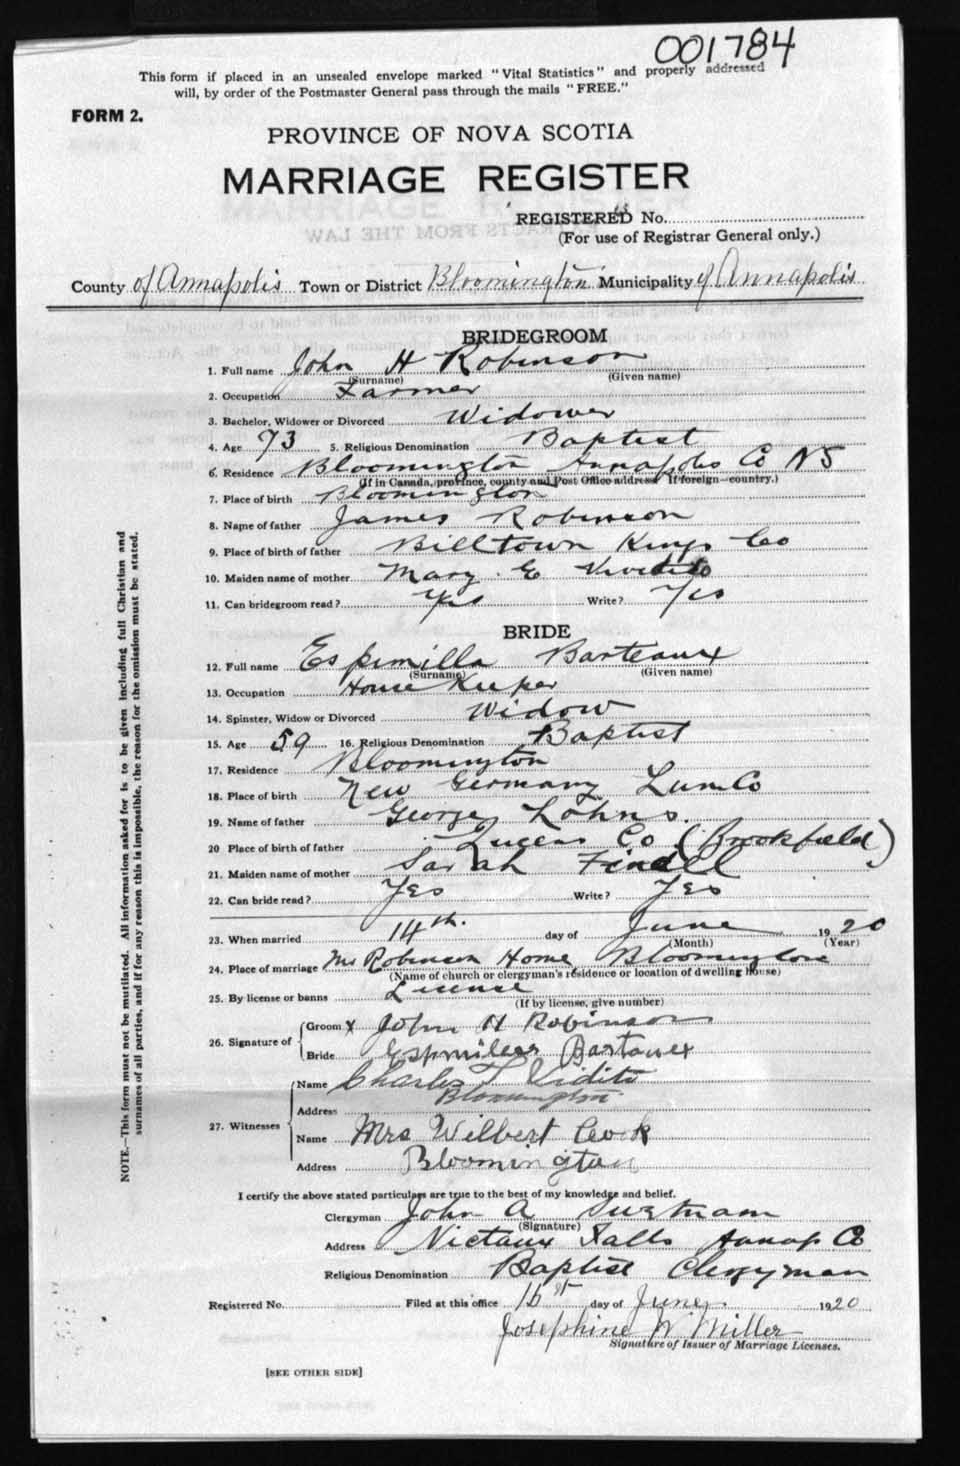 001784
This form if placed in an unsealed envelope marked "Vital Statistics" and properly addressed
will, by order of the Postmaster General pass through the mails "FREE."
FORM 2.
PROVINCE OF NOVA SCOTIA
MARRIAGE REGISTER
REGISTERED No.
(For use of Registrar General only.)
County of Annapolis Town or District Bloomington Municipality of Annapolis
BRIDEGROOM
1. Full name John H Robinson
(Surname) (Given name)
2. Occupation Farmer
3. Bachelor, Widower or Divorced Widower
4. Age 73 5. Religious Denomination Baptist
6. Residence Bloomington Annapolis Co NS
(If in Canada, province, county and Post Office address If foreign—country.)
7. Place of birth Bloomington
8. Name of father James Robinson
9. Place of birth of father Billtown Kings Co
10. Maiden name of mother Mary E
11. Can bridegroom read? Yes Write? Yes
BRIDE
12. Full name Espimilla Barteaux
(Surname) (Given name)
13. Occupation House Keeper
14. Spinster, Widow or Divorced Widow
15. Age 59 16. Religious Denomination Baptist
17. Residence Bloomington
18. Place of birth New Germany Lun Co
19. Name of father George Lohns
20 Place of birth of father Queens Co (Brookfield)
21. Maiden name of mother Sarah
22. Can bride read? Yes Write? Yes
23. When married 14th. day of June 1920
(Month) (Year)
24. Place of marriage Mr Robinson Home Bloomington
(Name of church or clergyman's residence or location of dwelling house)
25. By license or banns License
(If by license, give number)
26. Signature of
Groom X John H Robinson
Bride Bartawex
27. Witnesses
Name Charles T Vidito
Address Bloomington
Name Mrs Wilbert Cook
Address Bloomington
I certify the above stated particulars are true to the best of my knowledge and belief.
Clergyman John A
(Signature)
Address Nictaux Falls Annap Co
Religious Denomination Baptist Clergyman
Registered No. Filed at this office 16st day of June 1920
Josephine W Miller
Signature of Issuer of Marriage Licenses.
[SEE OTHER SIDE]
NOTE.—This form must not be mutilated. All information asked for is to be given including full Christian and
surnames of all parties, and if for any reason this is impossible, the reason for the omission must be stated.